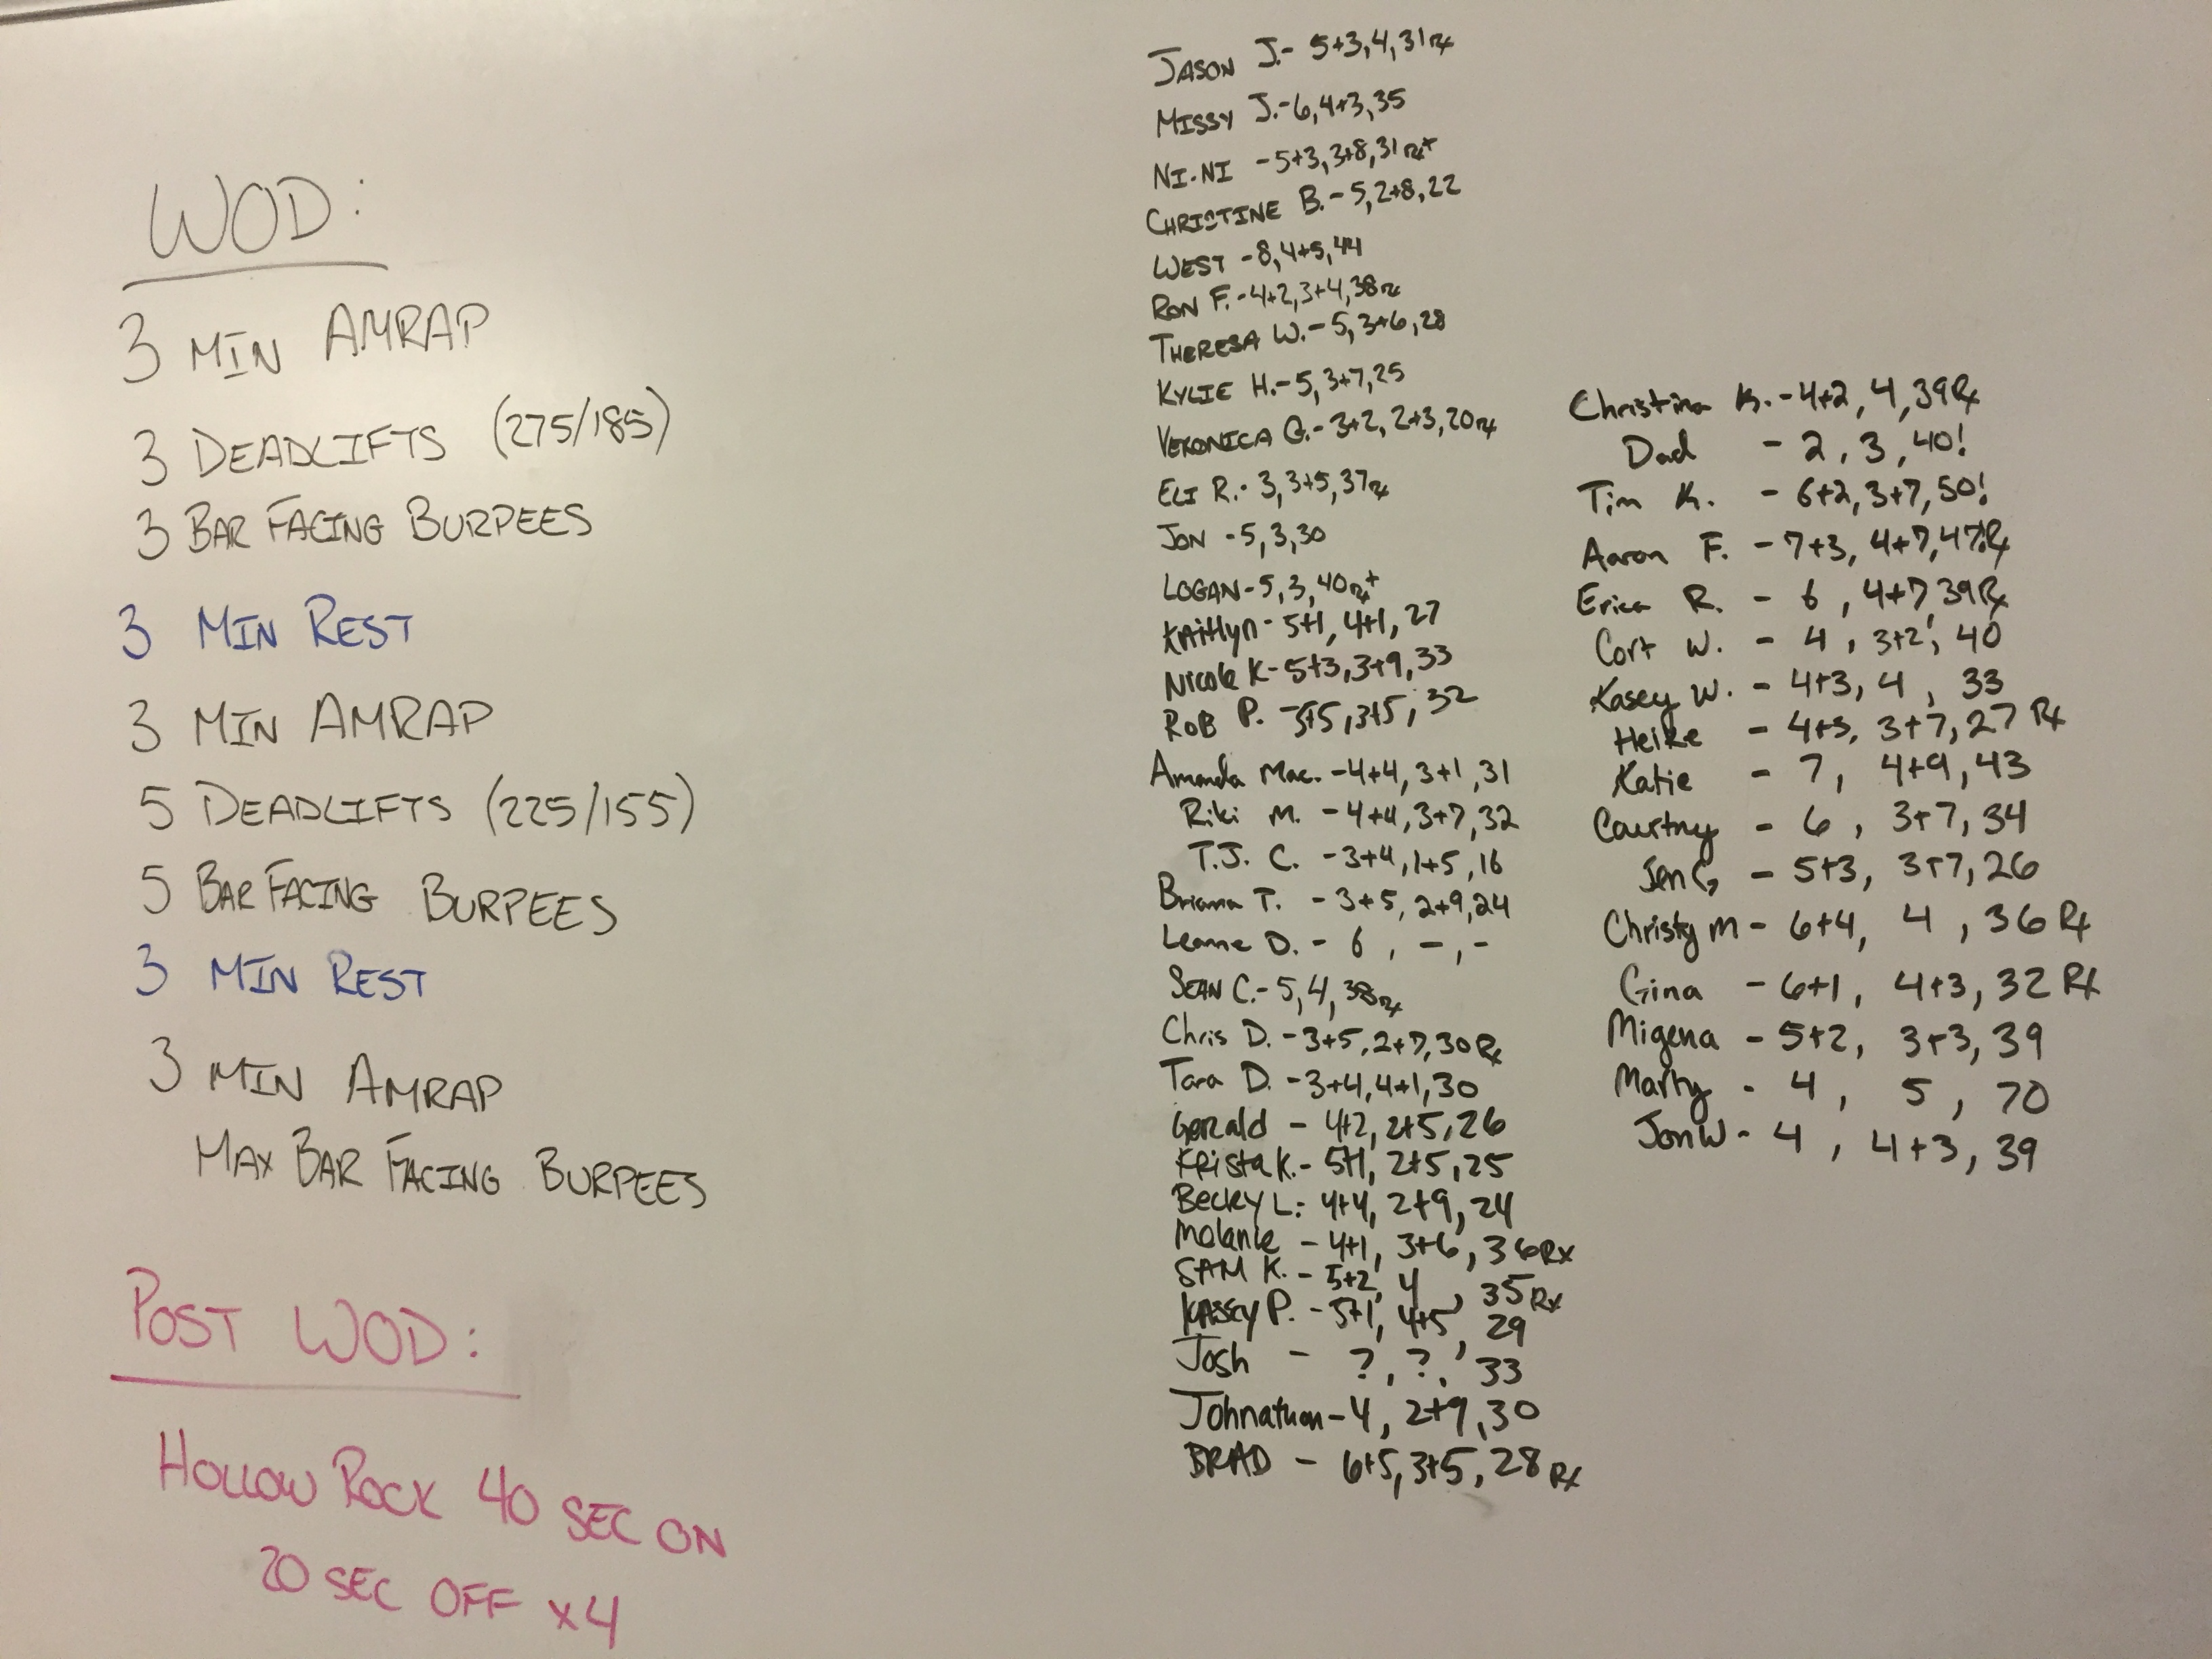 WOD:
3 MIN AMRAP
3 DEADLIFTS (275/185)
3 BAR FACING BURPEES
3 MIN REST
3 MIN AMRAP
5 DEADLIFTS (225/155)
5 BAR FACING BURPEES
3 MIN REST
3 MIN AMRAP
MAX BAR FACING BURPEES
POST WOD:
HOLLOW ROCK 40 SEC ON
20 SEC OFF x4
JASON J.- 5+3,4,31 Rx
MISSY J.-6,4+3,35
NI-NI -5+3,3+8,31 Rx+
CHRISTINE B.-5,2+8,22
WEST -8,4+5,44
RON F.-4+2,3+4,38 Rx
THERESA W.-5,3+6,28
KYLIE H.-5,3+7,25
VERONICA G.-3+2,2+3,20 Rx
ELI R.- 3,3+5,37 Rx
JON -5,3,30
LOGAN-5,3,40 Rx+
KAITlyn- 5+1, 4+1, 27
Nicole K-5+3,3+9,33
ROB P. - ,3+5, 32
Amanda Mac. -4+4, 3+1,31
Riki M. -4+4,3+7,32
T.J. C. -3+4,1+5,16
Briana T. -3+5, 2+9,24
Leanne D. - 6 , -,-
SEAN C.-5,4,38 Rx
Chris D. -3+5,2+7,30 Rx
Tara D. -3+4,4+1,30
Gerald - 4+2, 2+5,26
Krista K.- 5+1, 2+5,25
Becky L: 4+4, 2+9, 24
Melanie - 4+1, 3+6, 36 Rx
SAM K. - 5+2, 4 , 35 Rx
KASEY P. -5+1, 4+5, 29
Josh - ?, ?, 33
Johnathan-4, 2+9,30
BRAD - 6+5,3+5,28 Rx
Christina K.-4+2, 4,39 Rx
Dad - 2, 3,40!
Tim K. - 6+2,3+7,50!
Aaron F. -7+3, 4+7,47! Rx
Erica R. - 6 , 4+7 39 Rx
Cort W. - 4 , 3+2, 40
Kasey W. - 4+3, 4 , 33
Heike - 4+3, 3+7,27 Rx
Katie - 7, 4+9,43
Courtny - 6 , 3+7, 34
Jen G - 5+3, 3+7,26
Christy M - 6+4, 4 , 36 Rx
Gina - 6+1, 4+3, 32 Rx
Migena - 5+2, 3+3, 39
Marty - 4, 5, 70
Jon W- 4 , 4+3, 39